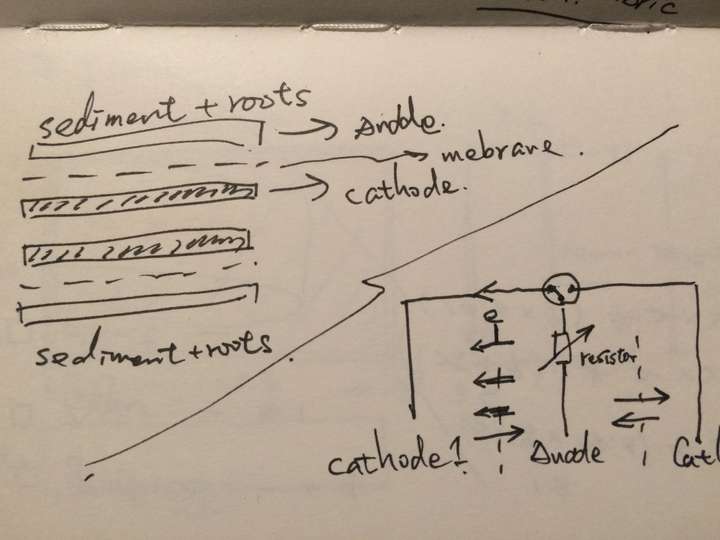 sediment + roots
Anode.
mebrane.
cathode.
sediment + roots.
e
resistor
cathode 1
Anode
Cat